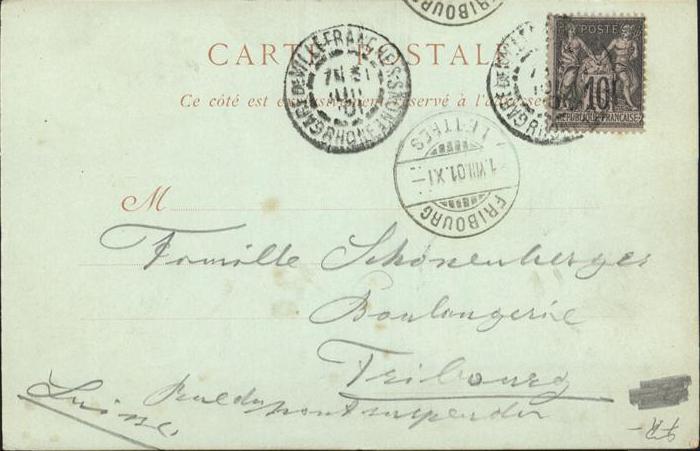 FRIBOURG
CARTE POSTALE
Ce côté est exclusivement réservé à l'adresse
POSTES
10
REPUBLIQUE FRANCAISE
GARE DE VILLEFRANCHE-S-SAONE RHONE
31
JUIL
01
FRIBOURG
LETTRES
1.VIII.01.XI-
M
Famille Schönenberger
Boulangerie
Fribourg
Rue du pont suspendu
Suisse